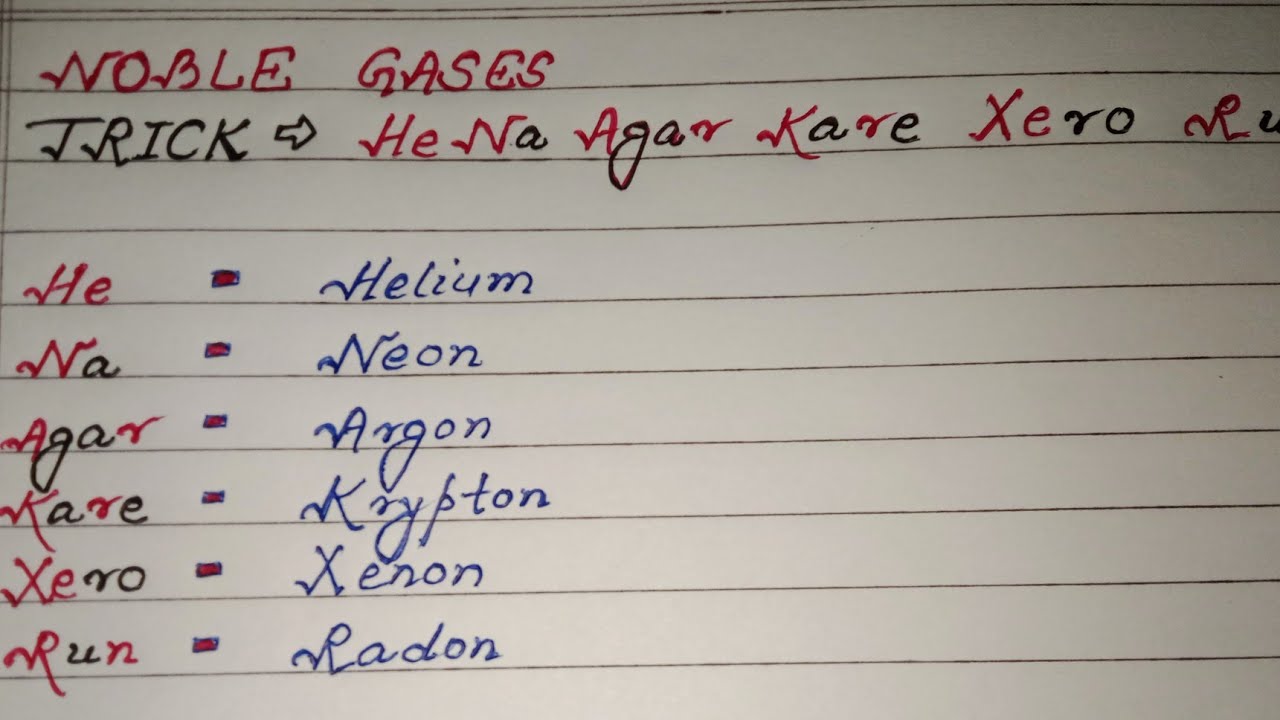 NOBLE GASES
TRICK ⇨ He Na Agar Kare Xero Ru
He = Helium
Na = Neon
Agar = Argon
Kare = Krypton
Xero = Xenon
Run = Radon